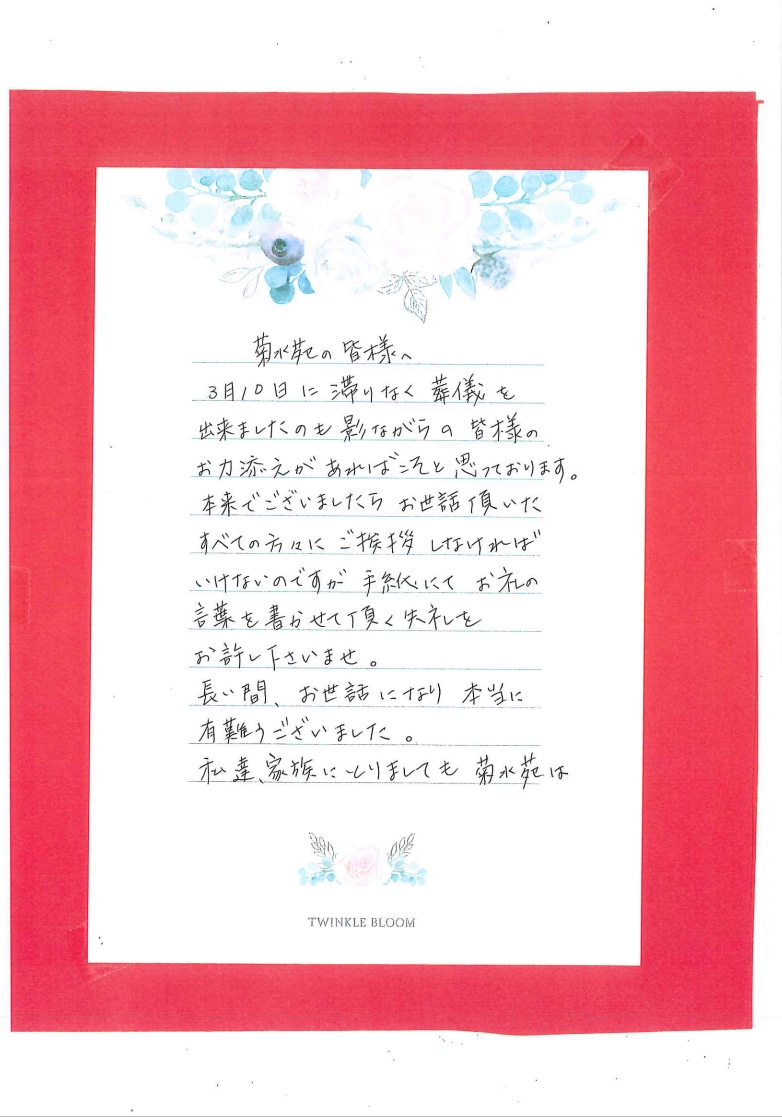 菊水苑の皆様へ
3月10日に滞りなく葬儀を
出来ましたのも影ながらの皆様の
お力添えがあればこそと思っております。
本来でございましたらお世話頂いた
すべての方々にご挨拶しなければ
いけないのですが手紙にてお礼の
言葉を書かせて頂く失礼を
お許し下さいませ。
長い間、お世話になり本当に
有難うございました。
私達、家族にとりましても菊水苑は
TWINKLE BLOOM